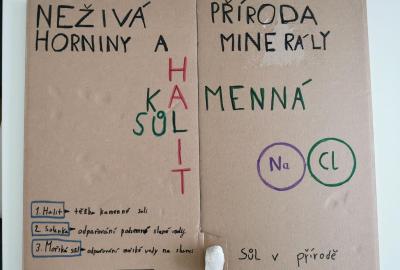 NEŽIVÁ PŘÍRODA
HORNINY A MINERÁLY
HALIT
KAMENNÁ
SŮL
Na Cl
1. Halit - těžba kamenné soli
2. Solanka - odpařování podzemní slané vody
3. Mořská sůl - odpařování mořské vody na slunci
Sůl v přírodě